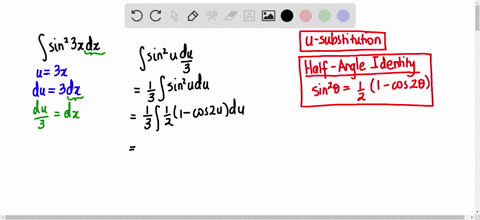 ∫ sin² 3x dx
u = 3x
du = 3dx
du/3 = dx
∫ sin² u du/3
= 1/3 ∫ sin² u du
= 1/3 ∫ 1/2 (1 - cos 2u) du
=
u-substitution
Half-Angle Identity
sin²θ = 1/2 (1 - cos 2θ)